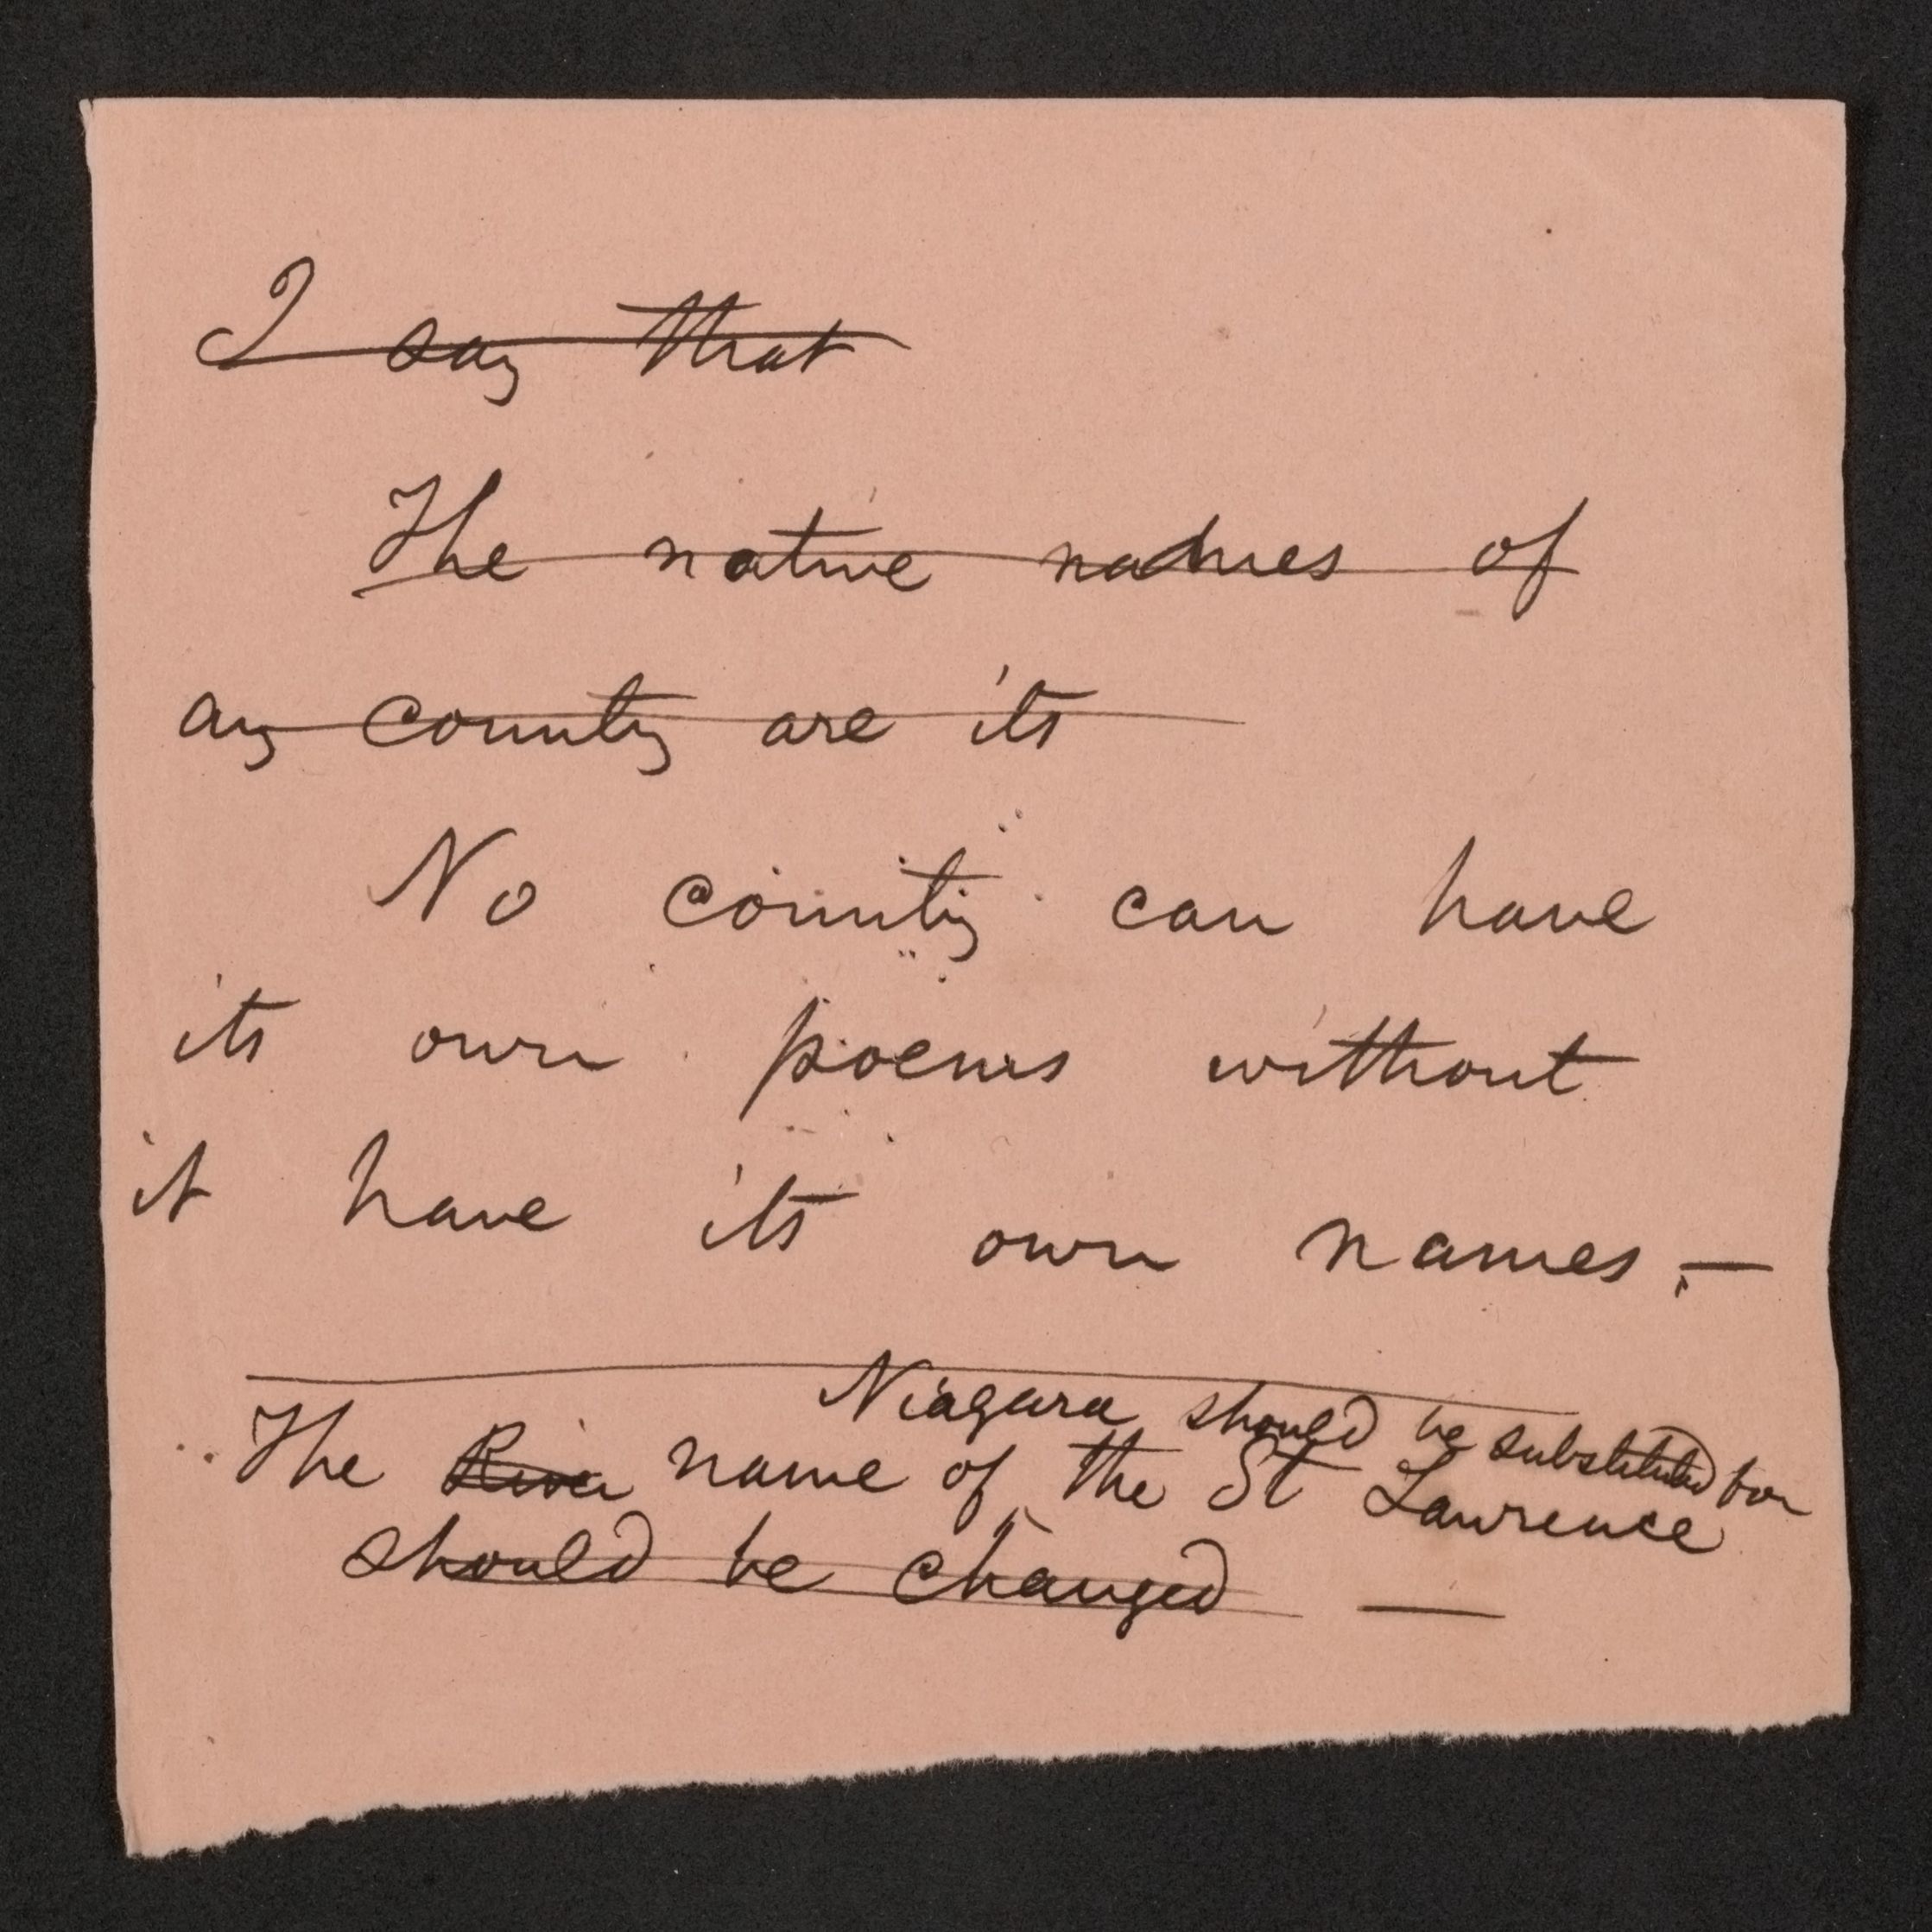 I say that
The native names of
any country are its
No country can have
its own poems without
it have its own names.—
Niagara should be substituted for
The River name of the St Lawrence
should be changed —